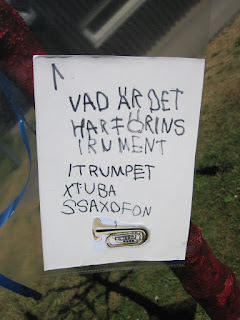 1
VAD ÄR DET
HAR FÖRINS
TRUMENT
1TRUMPET
XTUBA
SSAXOFON